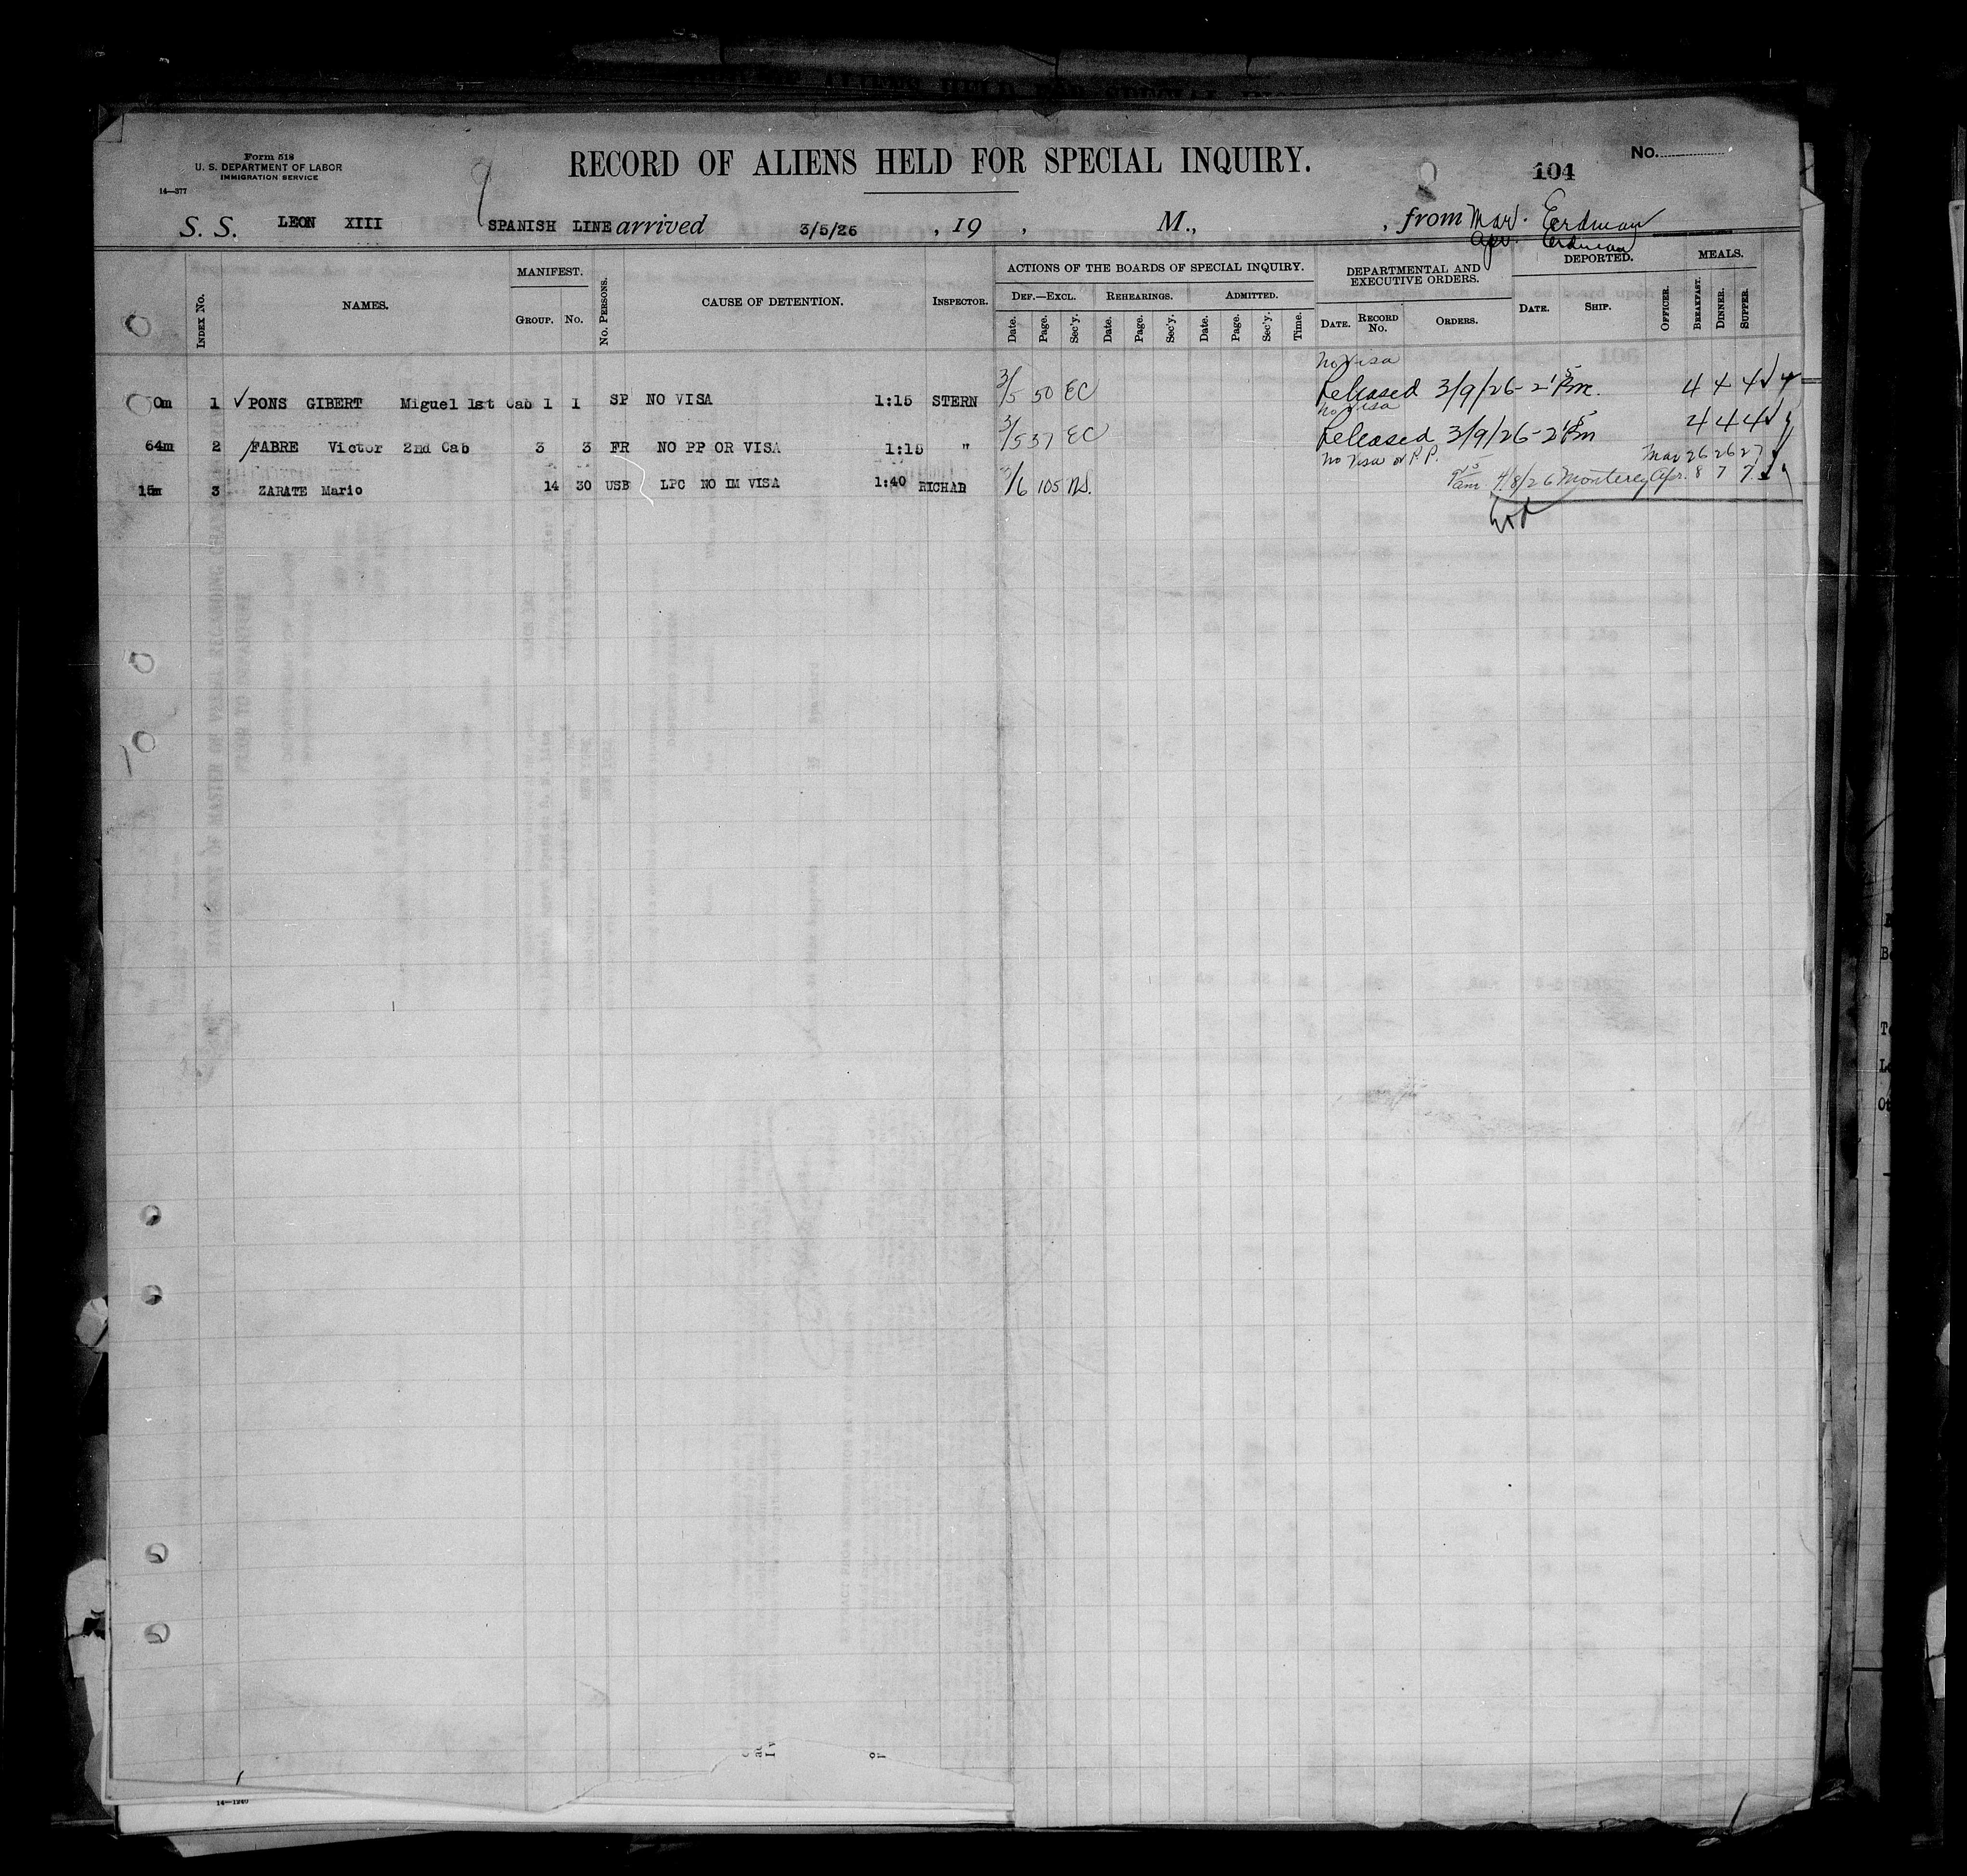 Form 518
U. S. DEPARTMENT OF LABOR
IMMIGRATION SERVICE
14—377
RECORD OF ALIENS HELD FOR SPECIAL INQUIRY.
No.
104
S. S. LEON XIII SPANISH LINE arrived 3/5/26 , 19 , M., , from Mar. Erdman
Apr. Erdman
INDEX NO. NAMES. MANIFEST. GROUP. NO. NO. PERSONS. CAUSE OF DETENTION. INSPECTOR.
ACTIONS OF THE BOARDS OF SPECIAL INQUIRY.
DEF.—EXCL. REHEARINGS. ADMITTED.
Date. Page. Sec'y. Date. Page. Sec'y. Date. Page. Sec'y. Time.
DEPARTMENTAL AND EXECUTIVE ORDERS.
DATE. RECORD No. ORDERS.
DEPORTED.
DATE. SHIP. OFFICER.
MEALS.
BREAKFAST. DINNER. SUPPER.
No Visa
0m 1 ✓PONS GIBERT Miguel 1st Cab 1 1 SP NO VISA 1:15 STERN 3/5 50 EC Released 3/9/26 - 2 15 Pm. 4 4 4 ✓
No Visa
64m 2 /FABRE Victor 2nd Cab 3 3 FR NO PP OR VISA 1:15 " 3/5 37 EC Released 3/9/26 - 2 15 Pm 4 4 4 ✓
No Visa or P.P. Mar 26 26 27
15m 3 ZARATE Mario 14 30 USB LPC NO IM VISA 1:40 RICHAR 3/6 105 NS. 9 15 am. 4/8/26 Monterey Apr. 8 7 7
14—1240